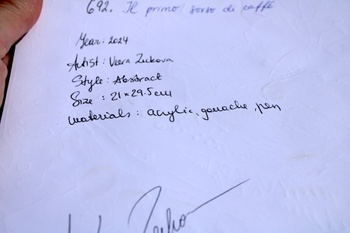 692. Il primo sorso di caffè
Year: 2024
Artist: Vera Zukova
Style: Abstract
Size: 21×29.5cm
Materials: acrylic, gouache, pen